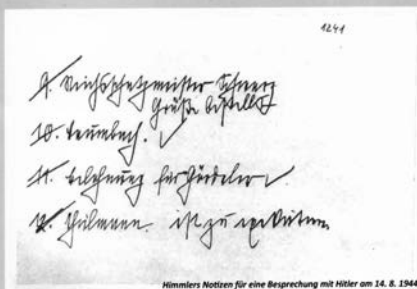 1241
9. Reichsschatzmeister Schwarz
Grüße bestellt
10.
11. Belohnung für Goerdeler
12. Thälmann. ist zu exekutieren
Himmlers Notizen für eine Besprechung mit Hitler am 14. 8. 1944